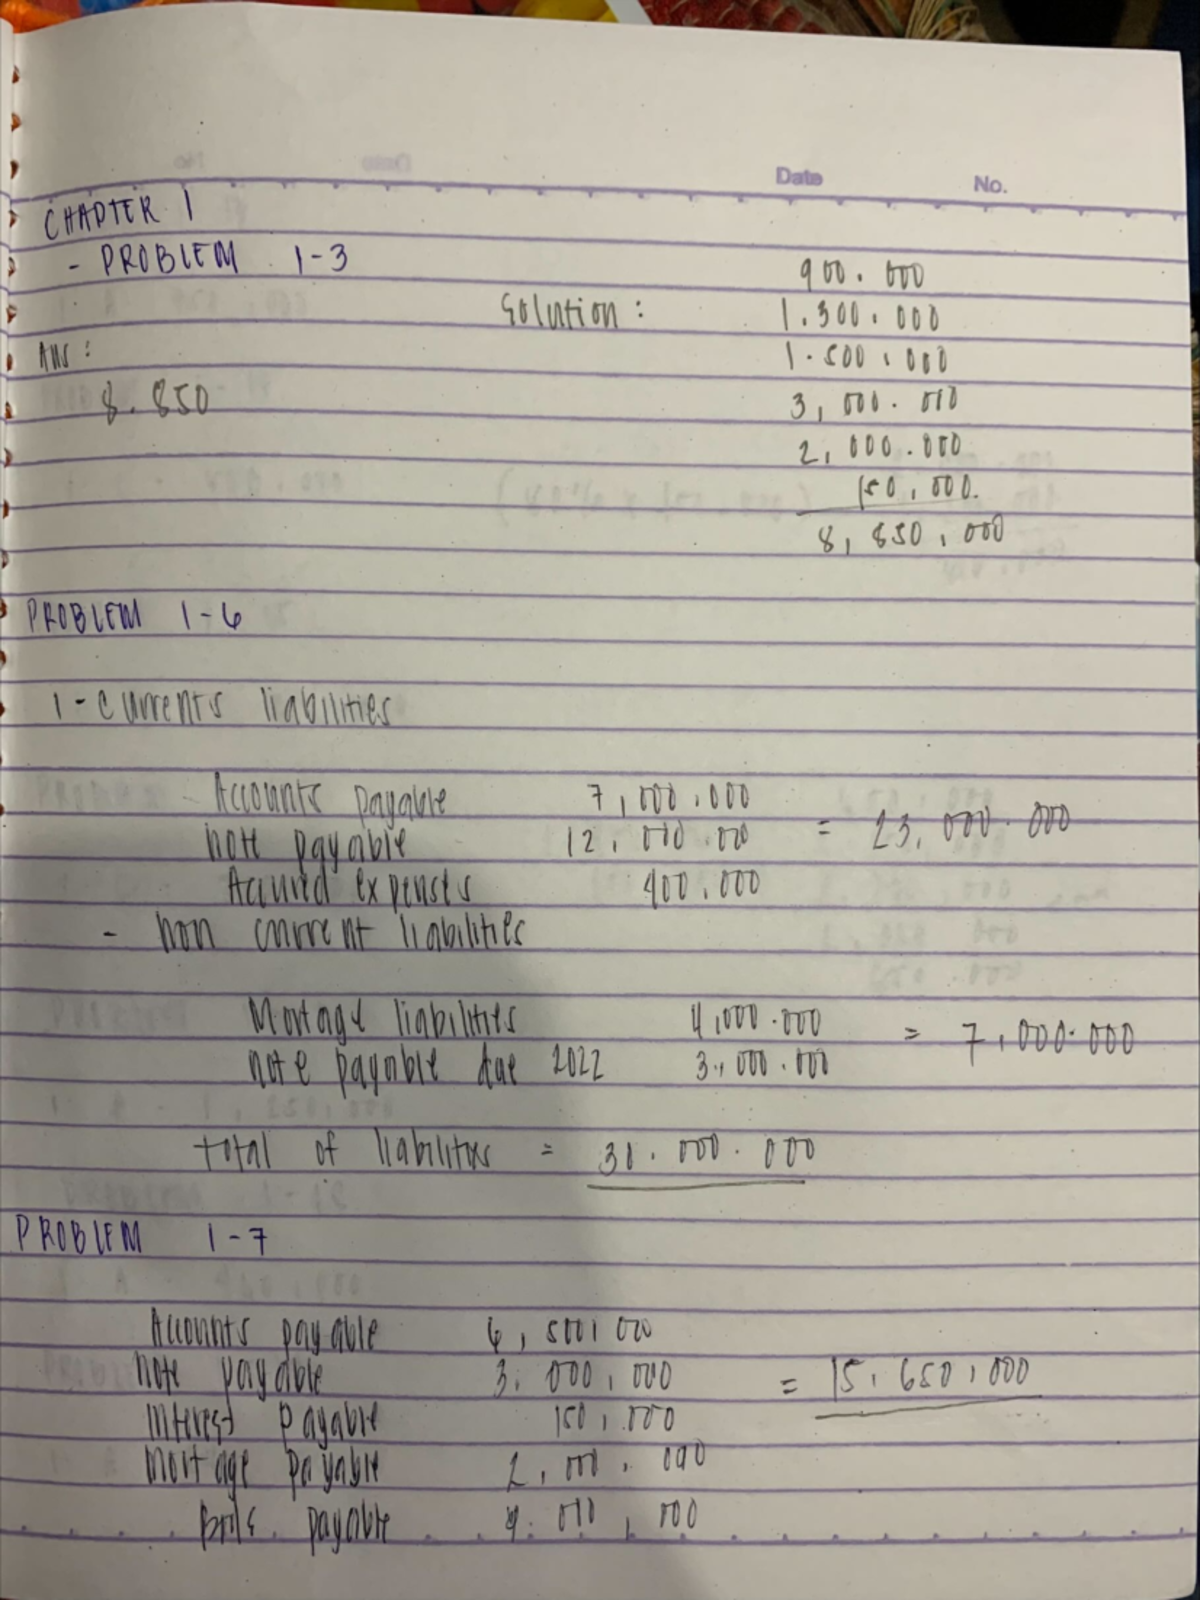 Date No.
CHAPTER 1
- PROBLEM 1-3
900.000
Solution: 1.300.000
Ans: 1.500,000
8.850 3,000.000
2,000.000
150,000.
8,850,000
PROBLEM 1-6
1-Currents liabilities
Accounts payable 7,000,000
note payable 12,000.000 = 23,000.000
Accured expenses 400.000
- non current liabilities
Mortage liabilities 4,000.000 = 7,000.000
note payable due 2022 3,000.000
total of liabilities = 30.000.000
PROBLEM 1-7
Accounts payable 6,500,000
note payable 3,000,000 = 15,650,000
interest payable 150,000
Mortage payable 2,000,000
payable 4.000,000